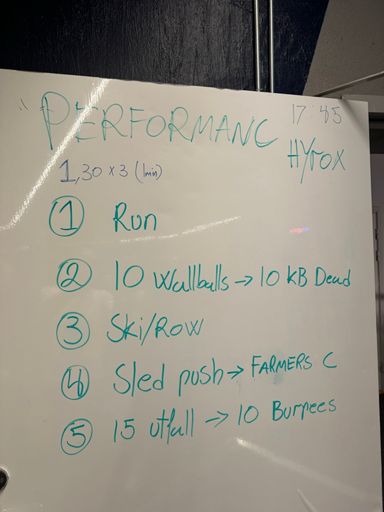 PERFORMANC
17 45
HYrox
1,30 x 3 (1min)
① Run
② 10 Wallballs → 10 KB Dead
③ Ski/Row
④ Sled push → FARMERS C
⑤ 15 utfall → 10 Burpees